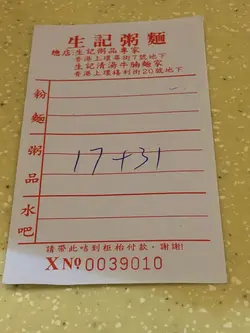 生記粥麵
總店:生記粥品專家
香港上環畢街7號地下
生記清湯牛腩麵家
香港上環禧利街20號地下
粉
麵
粥
品
水
吧
17+31
請帶此咭到柜枱付款。謝謝!
XNo 0039010